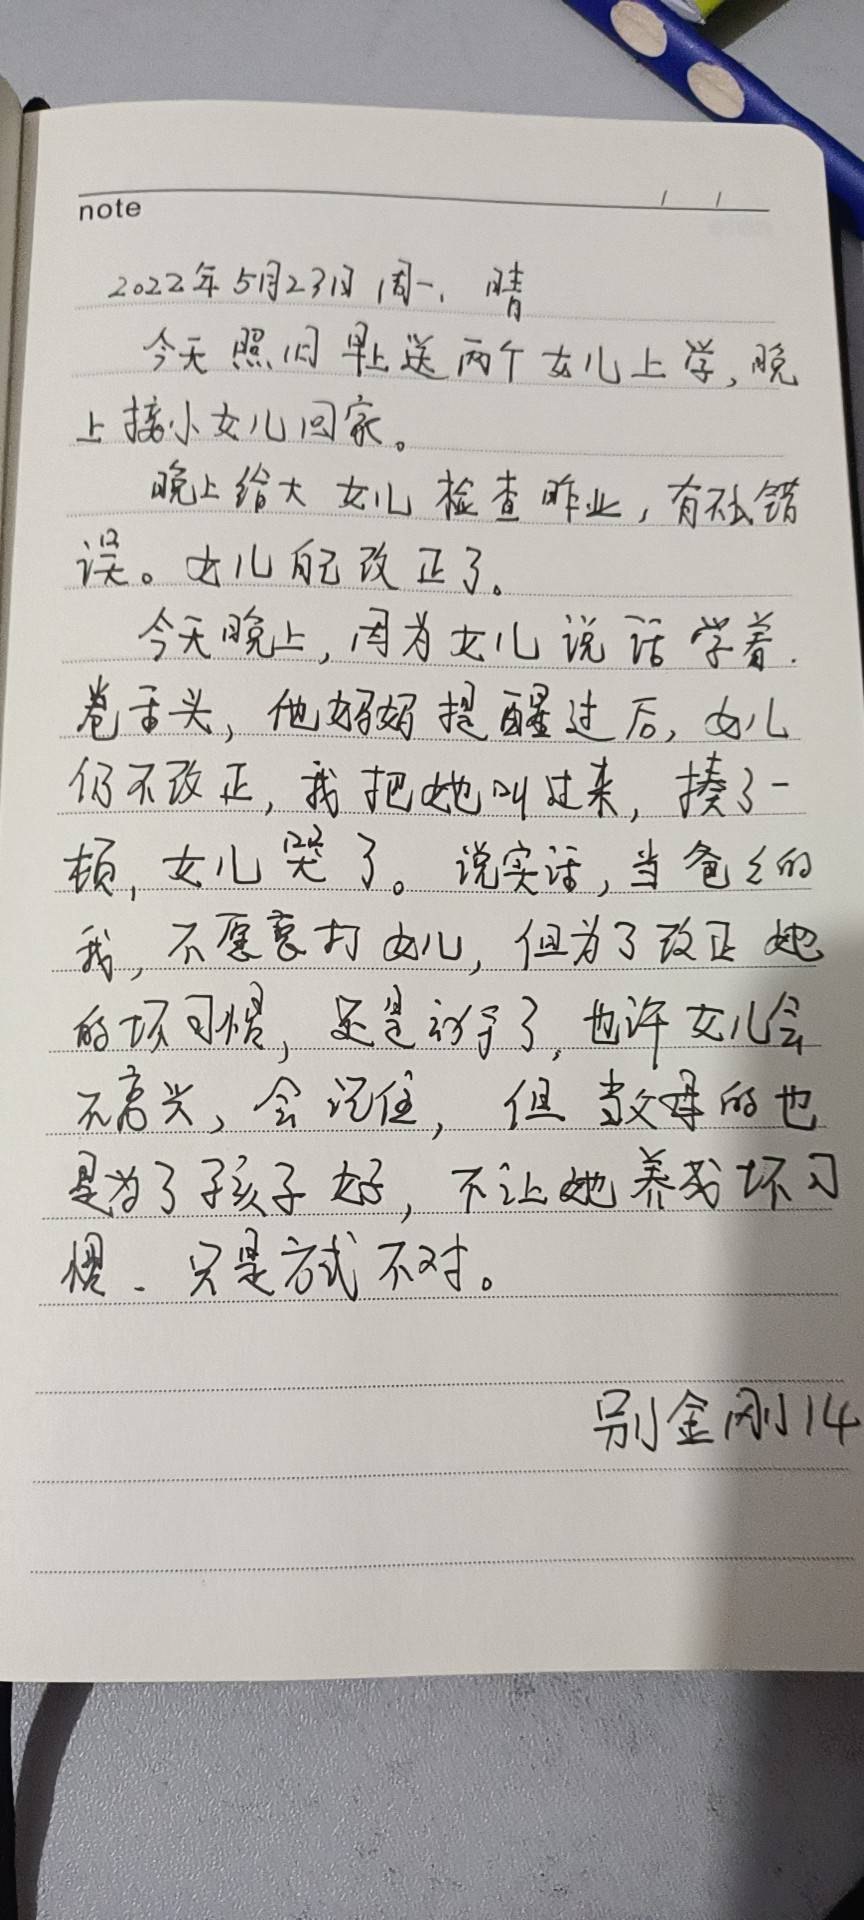 note
2022年5月23日 周一、晴
今天照旧早上送两个女儿上学,晚
上接小女儿回家。
晚上给大女儿检查昨业,有不么错
误。女儿自己改正了。
今天晚上,因为女儿说话学着
卷舌头,他妈妈提醒过后,女儿
仍不改正,我把她叫过来,揍了一
顿,女儿哭了。说实话,当爸爸的
我,不愿意打女儿,但为了改正她
的坏习惯,还是动手了,也许女儿会
不高兴,会记住,但当父母的也
是为了孩子好,不让她养成坏习
惯.只是方式不对。
别金刚14